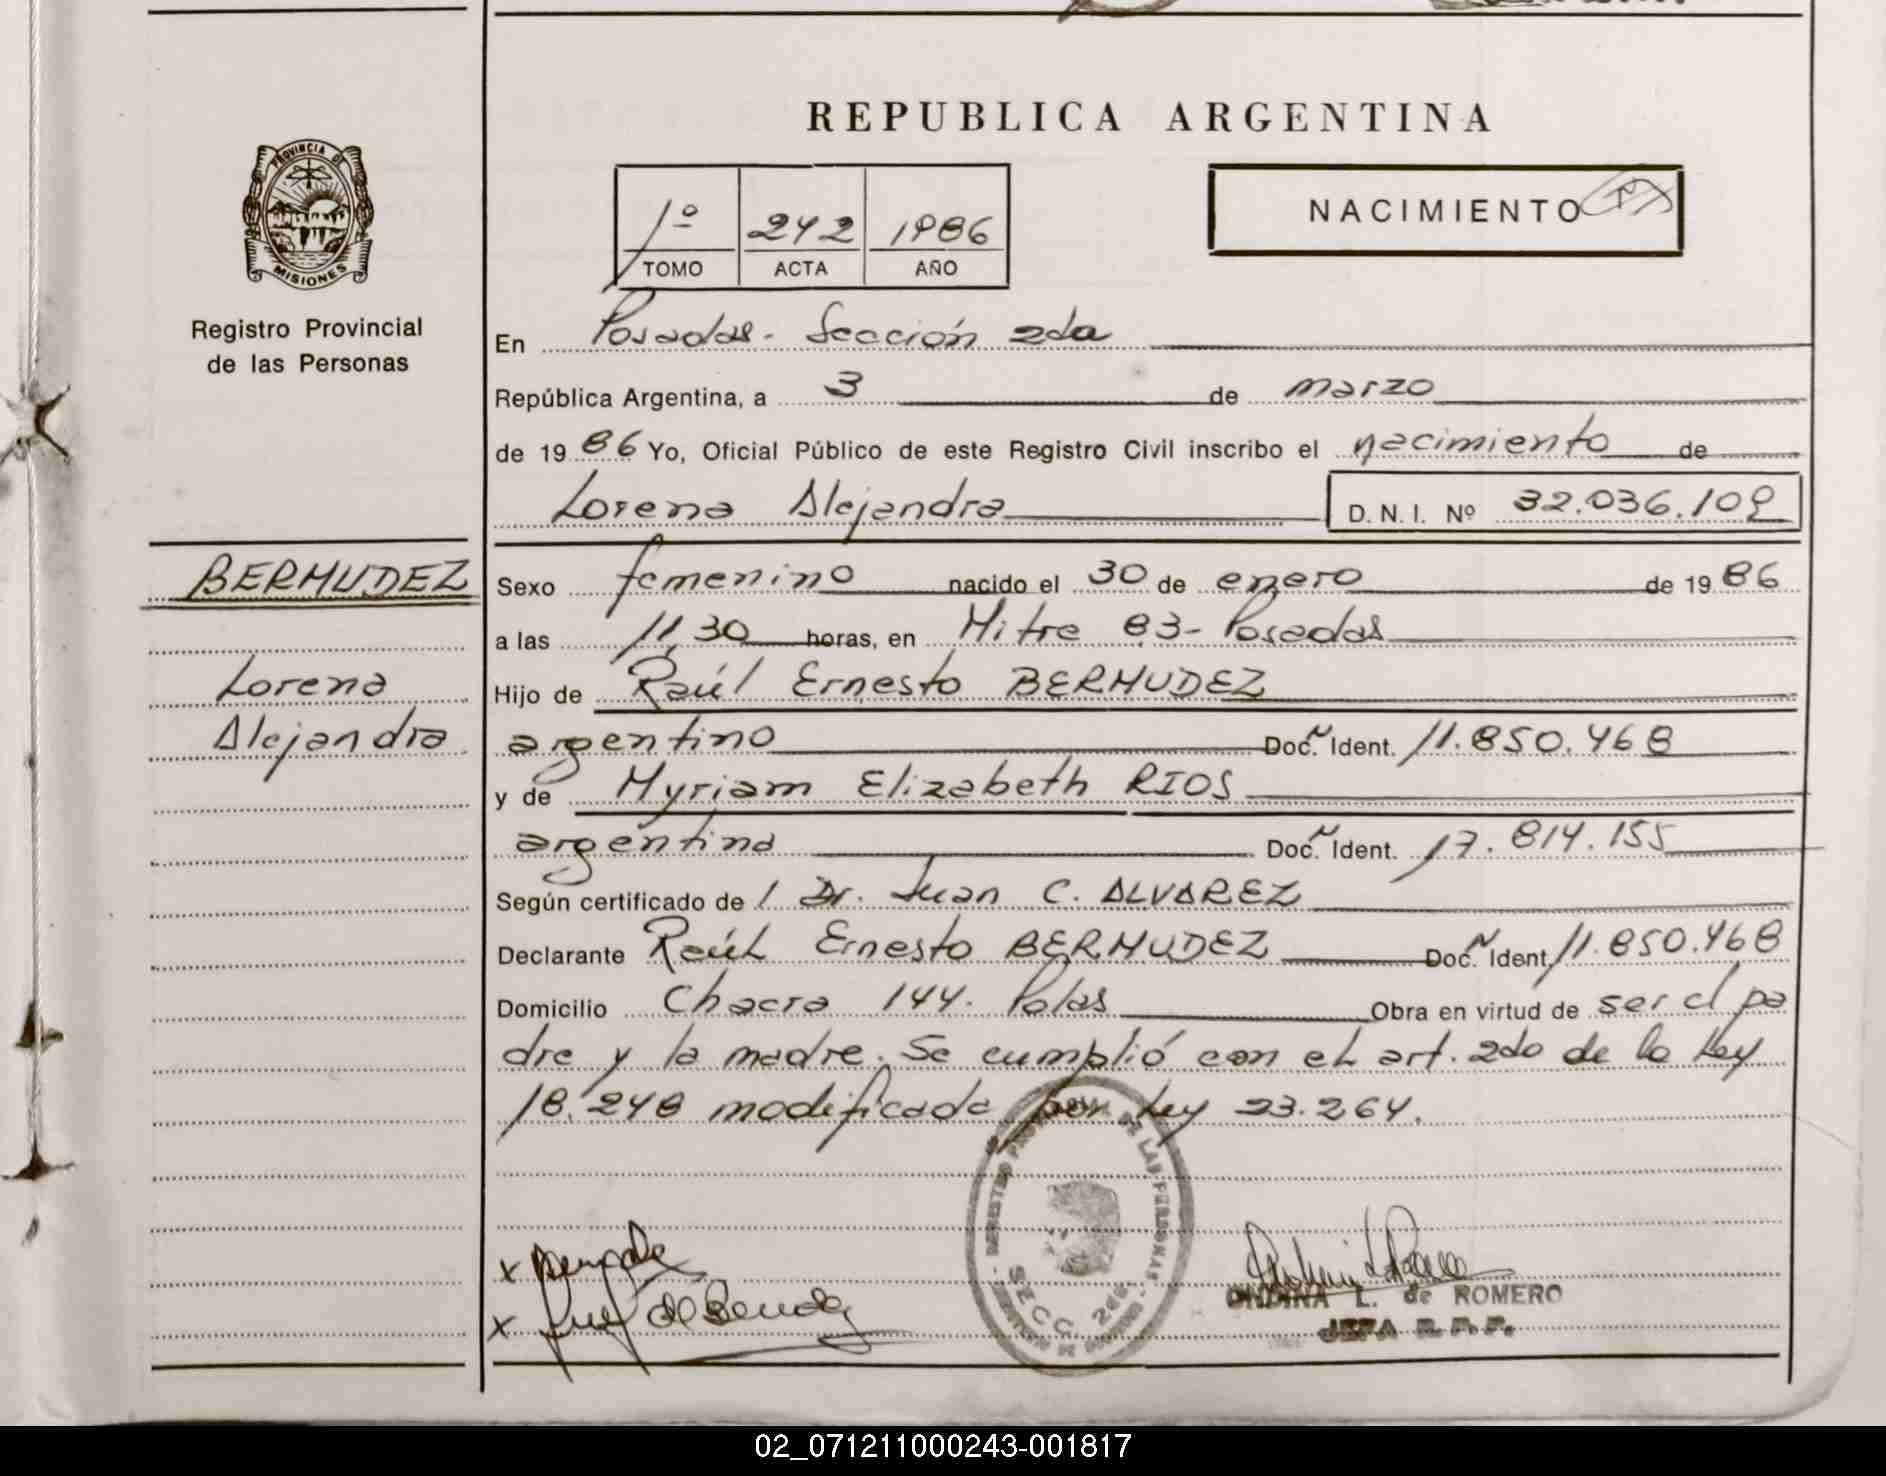 REPUBLICA ARGENTINA
PROVINCIA DE
MISIONES
Registro Provincial
de las Personas
1º 242 1986
TOMO ACTA AÑO
NACIMIENTO
En Posadas - Sección 2da
República Argentina, a 3 de marzo
de 1986 Yo, Oficial Público de este Registro Civil inscribo el nacimiento de
Lorena Alejandra D. N. I. Nº 32.036.109
BERMUDEZ
Lorena
Alejandra
Sexo femenino nacido el 30 de enero de 1986
a las 11,30 horas, en Mitre 83 - Posadas
Hijo de Raúl Ernesto BERMUDEZ
argentino Doc. Ident. 11.850.468
y de Myriam Elizabeth RIOS
argentina Doc. Ident. 17.814.155
Según certificado de / Dr. Juan C. ALVAREZ
Declarante Raúl Ernesto BERMUDEZ Doc. Ident. 11.850.468
Domicilio Chacra 144 - Pdas Obra en virtud de ser el pa
dre y la madre. Se cumplió con el art. 2do de la Ley
18.248 modificada por Ley 23.264.
REGISTRO PROVINCIAL DE LAS PERSONAS
SECC. 2da.
ONDINA L. de ROMERO
JEFA R. P. P.
02_071211000243-001817